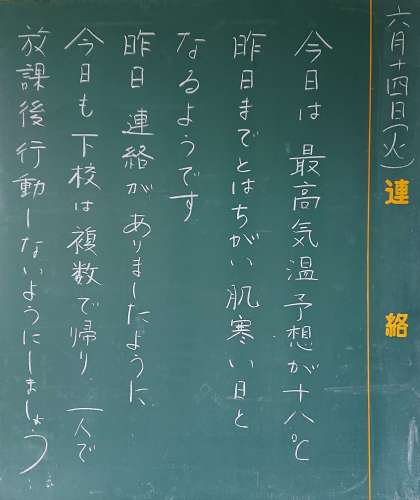 六月十四日(火)
連絡
今日は最高気温予想が十八℃
昨日まではとちがい肌寒い日と
なるようです
昨日連絡がありましたように、
今日も下校は複数で帰り、一人で
放課後行動しないようにしましょう